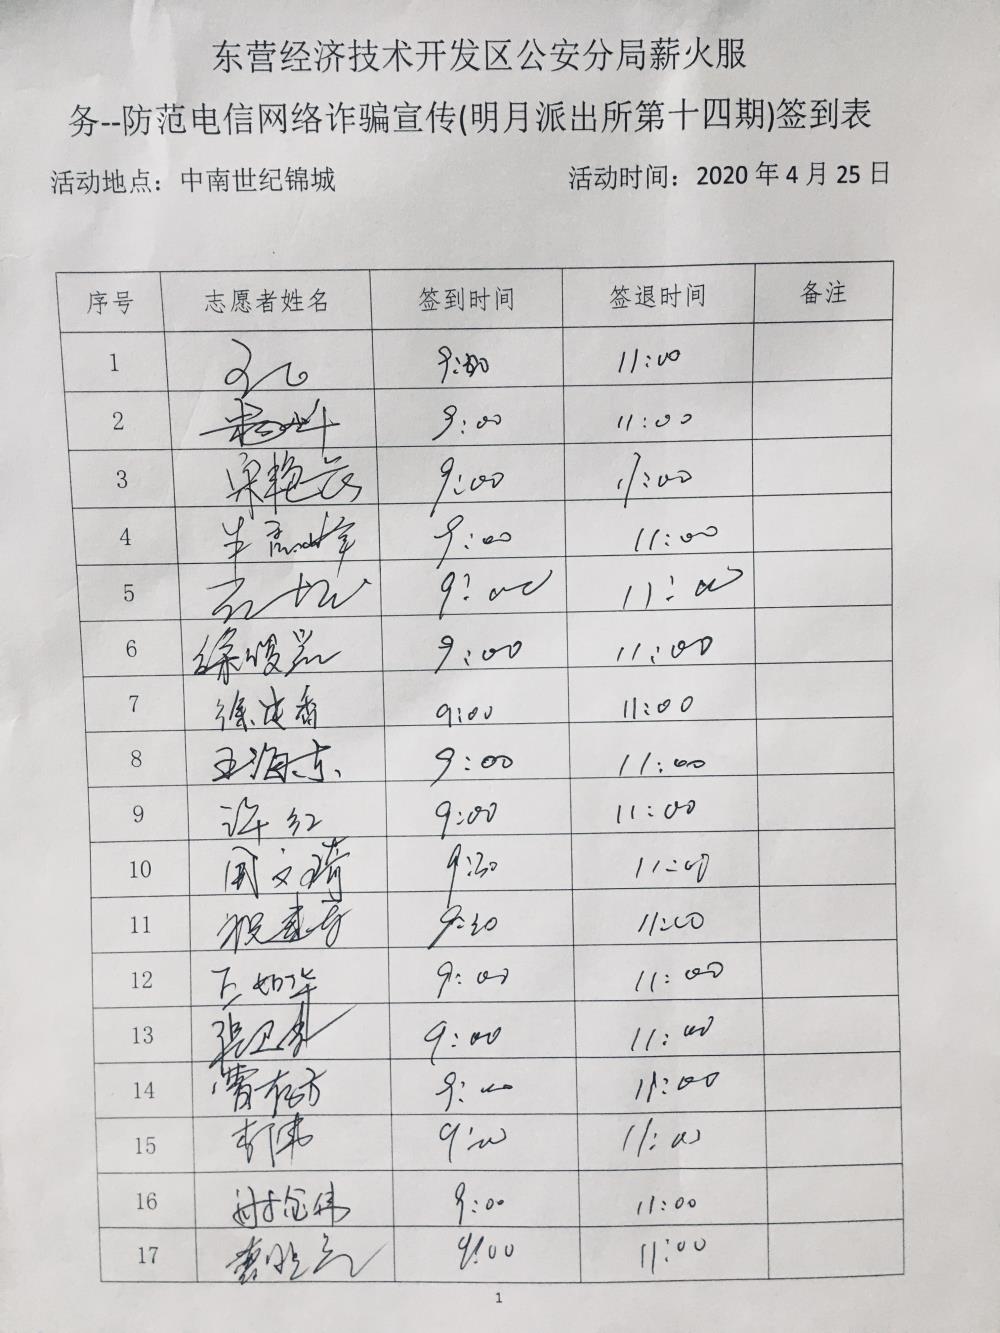 东营经济技术开发区公安分局薪火服
务--防范电信网络诈骗宣传(明月派出所第十四期)签到表
活动地点：中南世纪锦城 活动时间：2020 年 4 月 25 日
序号 志愿者姓名 签到时间 签退时间 备注
1 11:00
2 9:00 11:00
3 9:00 11:00
4 9:00 11:00
5 9:00 11:00
6 9:00 11:00
7 9:00 11:00
8 王海东 9:00 11:00
9 许红 9:00 11:00
10 周文琦 9:30 11:00
11 11:00
12 9:00 11:00
13 张卫东 9:00 11:00
14 曹存方 9:00 11:00
15 9:00 11:00
16 谢金伟 9:00 11:00
17 9:00 11:00
1